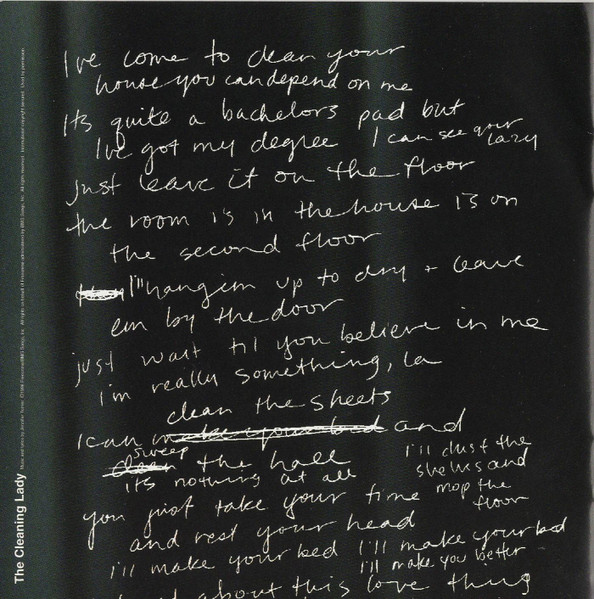 I've come to clean your
house you can depend on me
Its quite a bachelors pad but
I've got my degree I can see your lazy
just leave it on the floor
the room is in the house is on
the second floor
I'll hang em up to dry + leave
em by the door
just wait til you believe in me
i'm really something, la
clean the sheets
I can make your bed and
sweep
clean the hall
its nothing at all
I'll dust the
shelves and
mop the
floor
you just take your time
and rest your head
i'll make your bed I'll make your bed
I'll make you better
about this love thing
The Cleaning Lady